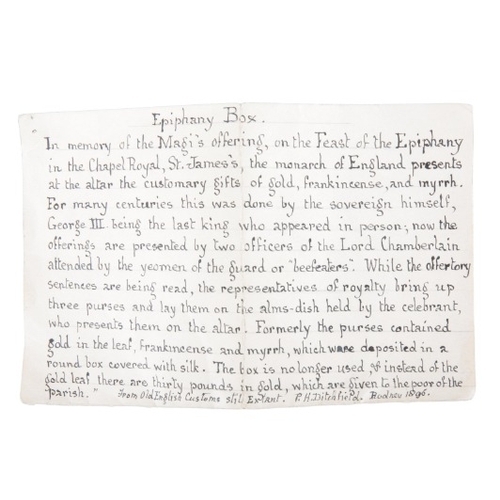 Epiphany Box.
In memory of the Magi's offering, on the Feast of the Epiphany
in the Chapel Royal, St. James's, the monarch of England presents
at the altar the customary gifts of gold, frankincense, and myrrh.
For many centuries this was done by the sovereign himself,
George III being the last king who appeared in person; now the
offerings are presented by two officers of the Lord Chamberlain
attended by the yeomen of the guard or "beefeaters". While the offertory
sentences are being read, the representatives of royalty bring up
three purses and lay them on the alms-dish held by the celebrant,
who presents them on the altar. Formerly the purses contained
gold in the leaf, frankincense and myrrh, which were deposited in a
round box covered with silk. The box is no longer used & instead of the
gold leaf there are thirty pounds in gold, which are given to the poor of the
parish." from Old English Customs still Extant. P. H. Ditchfield. 1896.